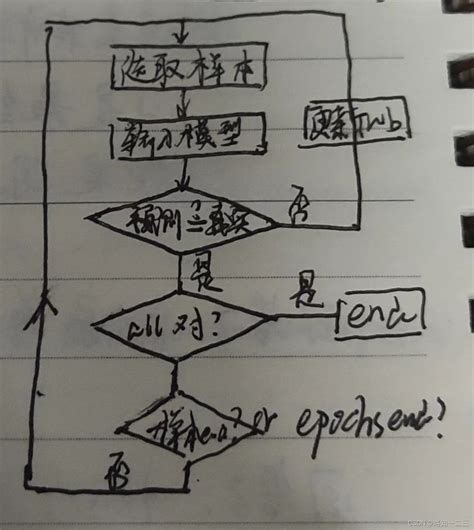 选取样本
输入模型
更新w,b
预测?=真实
否
是
all 对?
是
end
样本end? or epochs end?
否